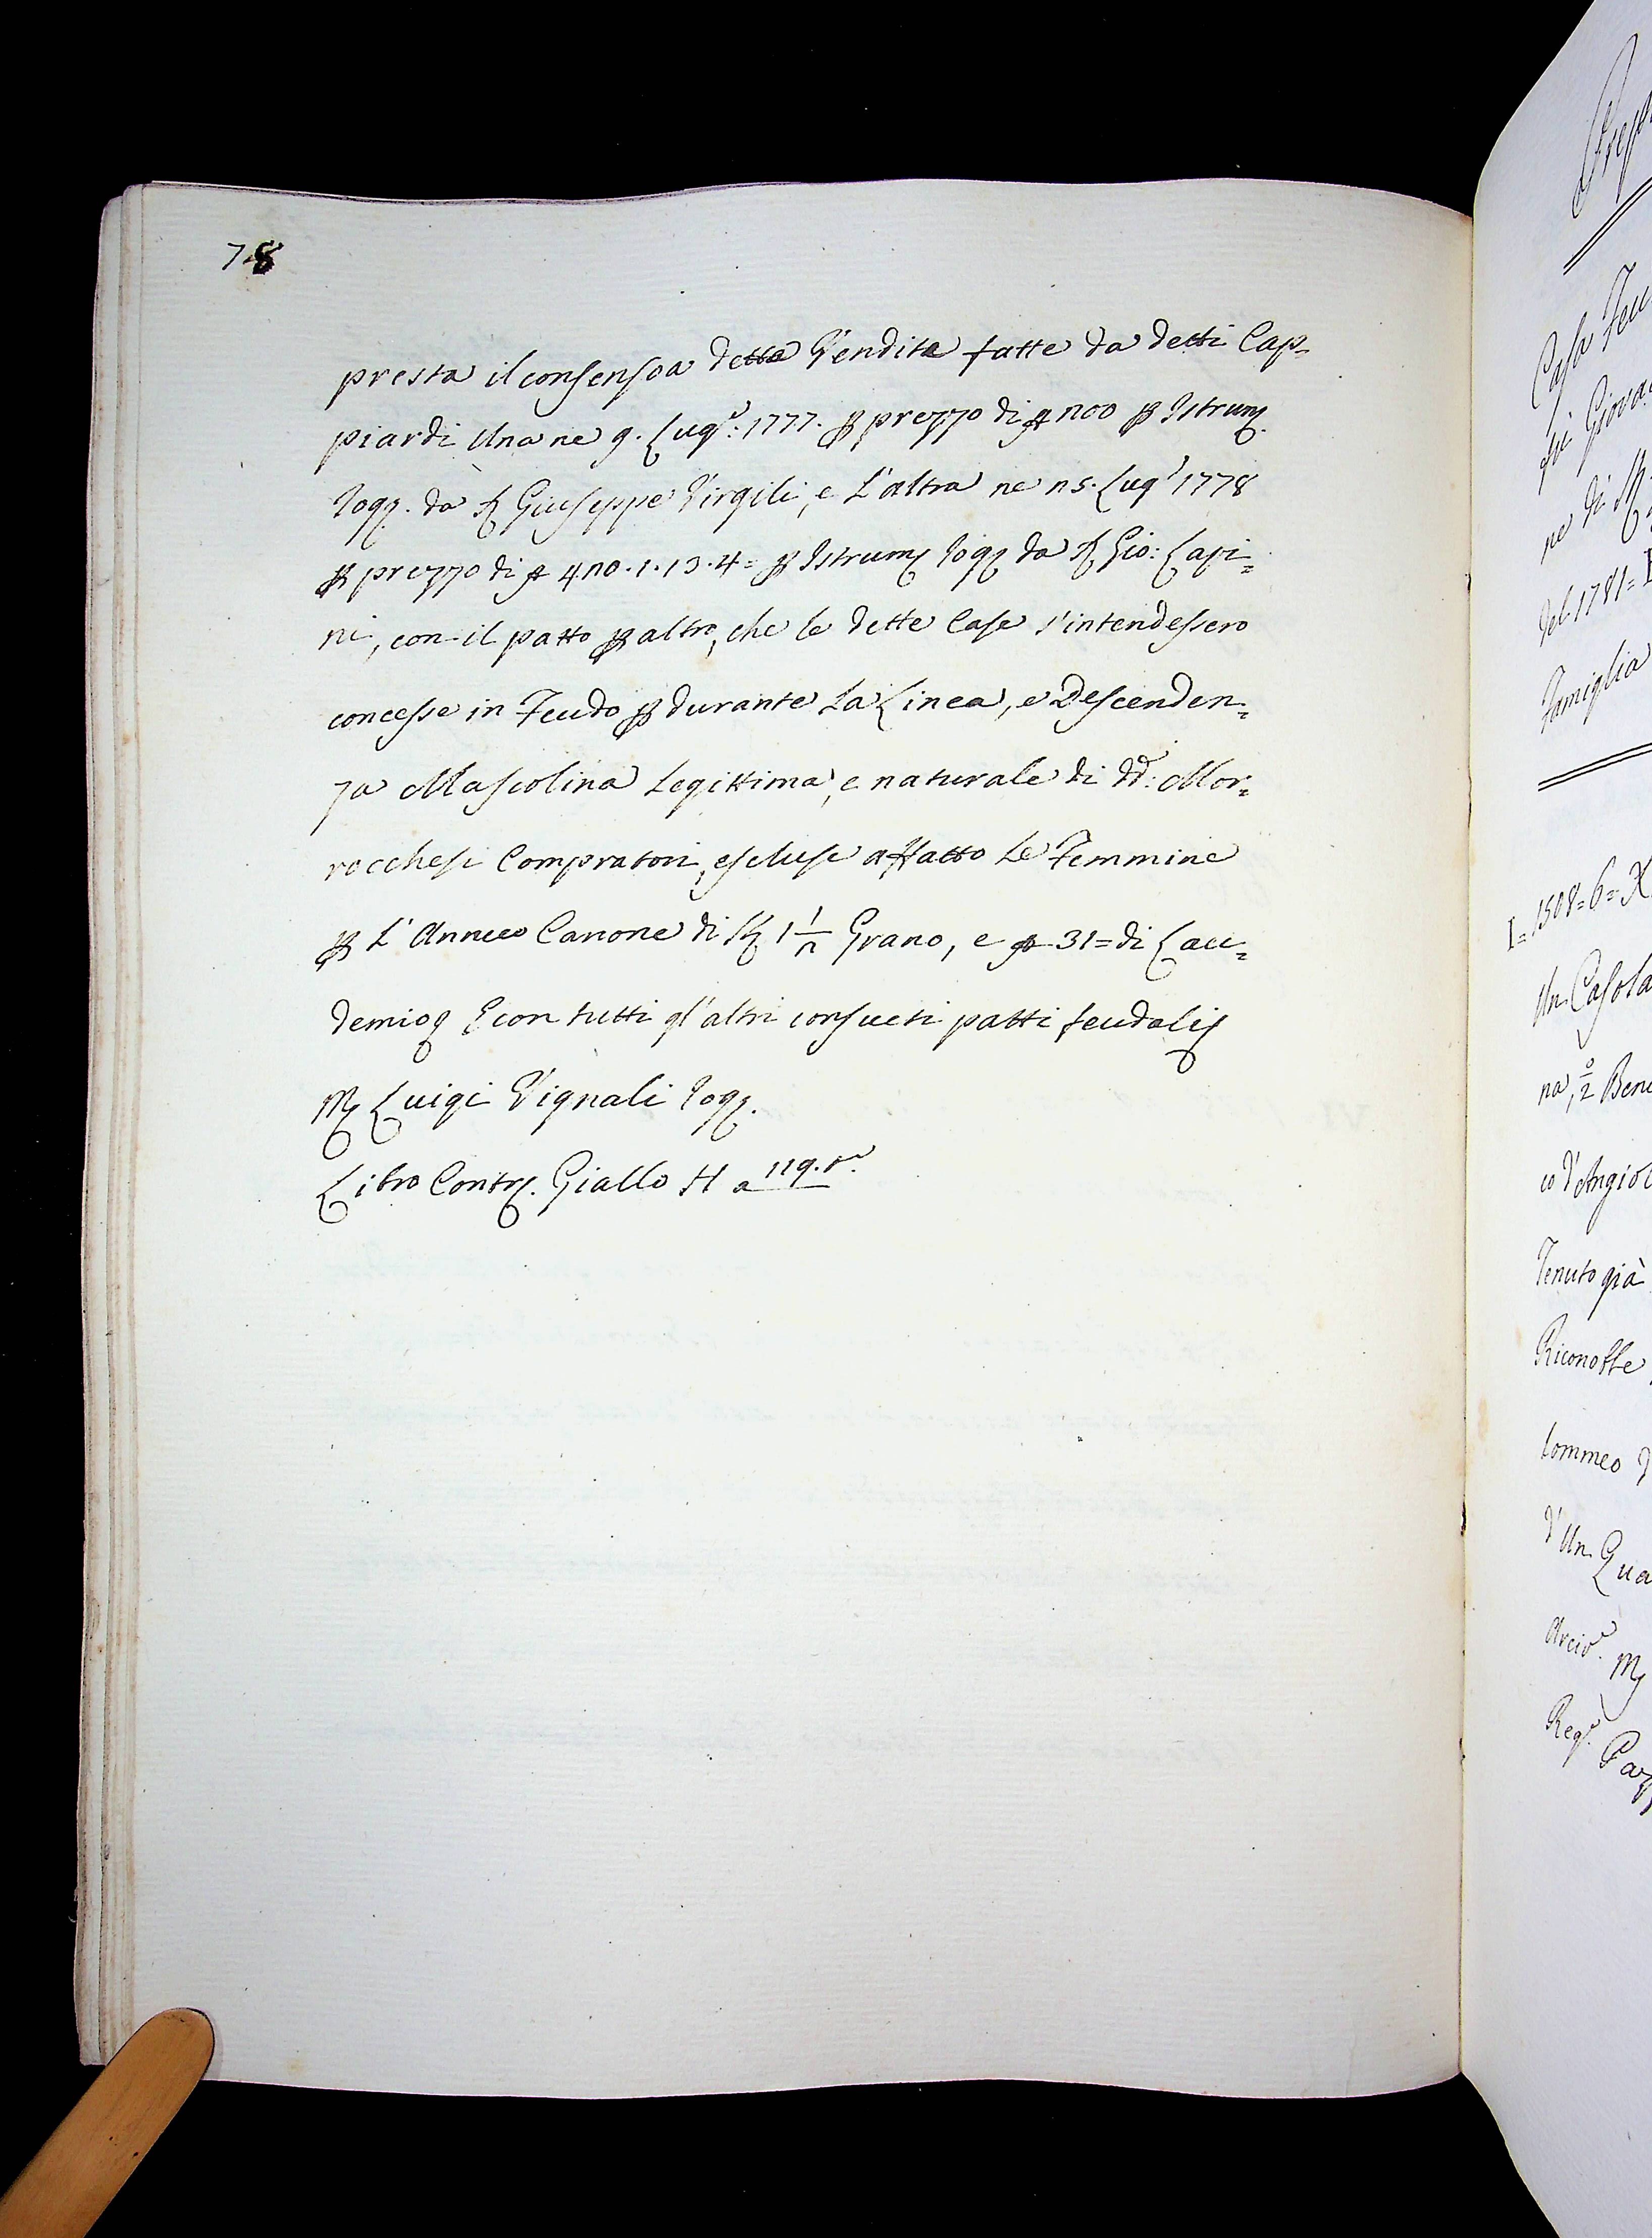 78
presta il consenso a dette Vendite fatte da detti Cap-
piardi Una ne 9. Lug.º: 1777. p prezzo di 200 p Istrum.
Rog. da S. Giuseppe Virgili, e L'altra ne 25. Lug.º 1778
p prezzo di 420.1.13.4= p Istrum. Rog. da S. Gio: Lapi=
ni, con il patto p altro, che le dette Case s'intendessero
concesse in Feudo p durante La Linea, e Descenden=
za Mascolina Legittima, e naturale di dd.: Mor=
rocchesi Compratori, escluse affatto Le Femmine
p L'Annuo Canone di St. 1 1/2 Grano, e 31= di Lau=
demio E con tutti gl'altri consueti patti feudali
M. Luigi Vignali Rog.
Libro Contr. Giallo H a 119.r.º
Casa Feu
di Giova
ne di
del 1781=
Famiglia
I= 1508=6=X
Un Casola
na,
Bene
co d'Angiol
Tenuto già
Riconobbe
lommeo
d'Un Qua
Arciv.º
M.
Reg.º